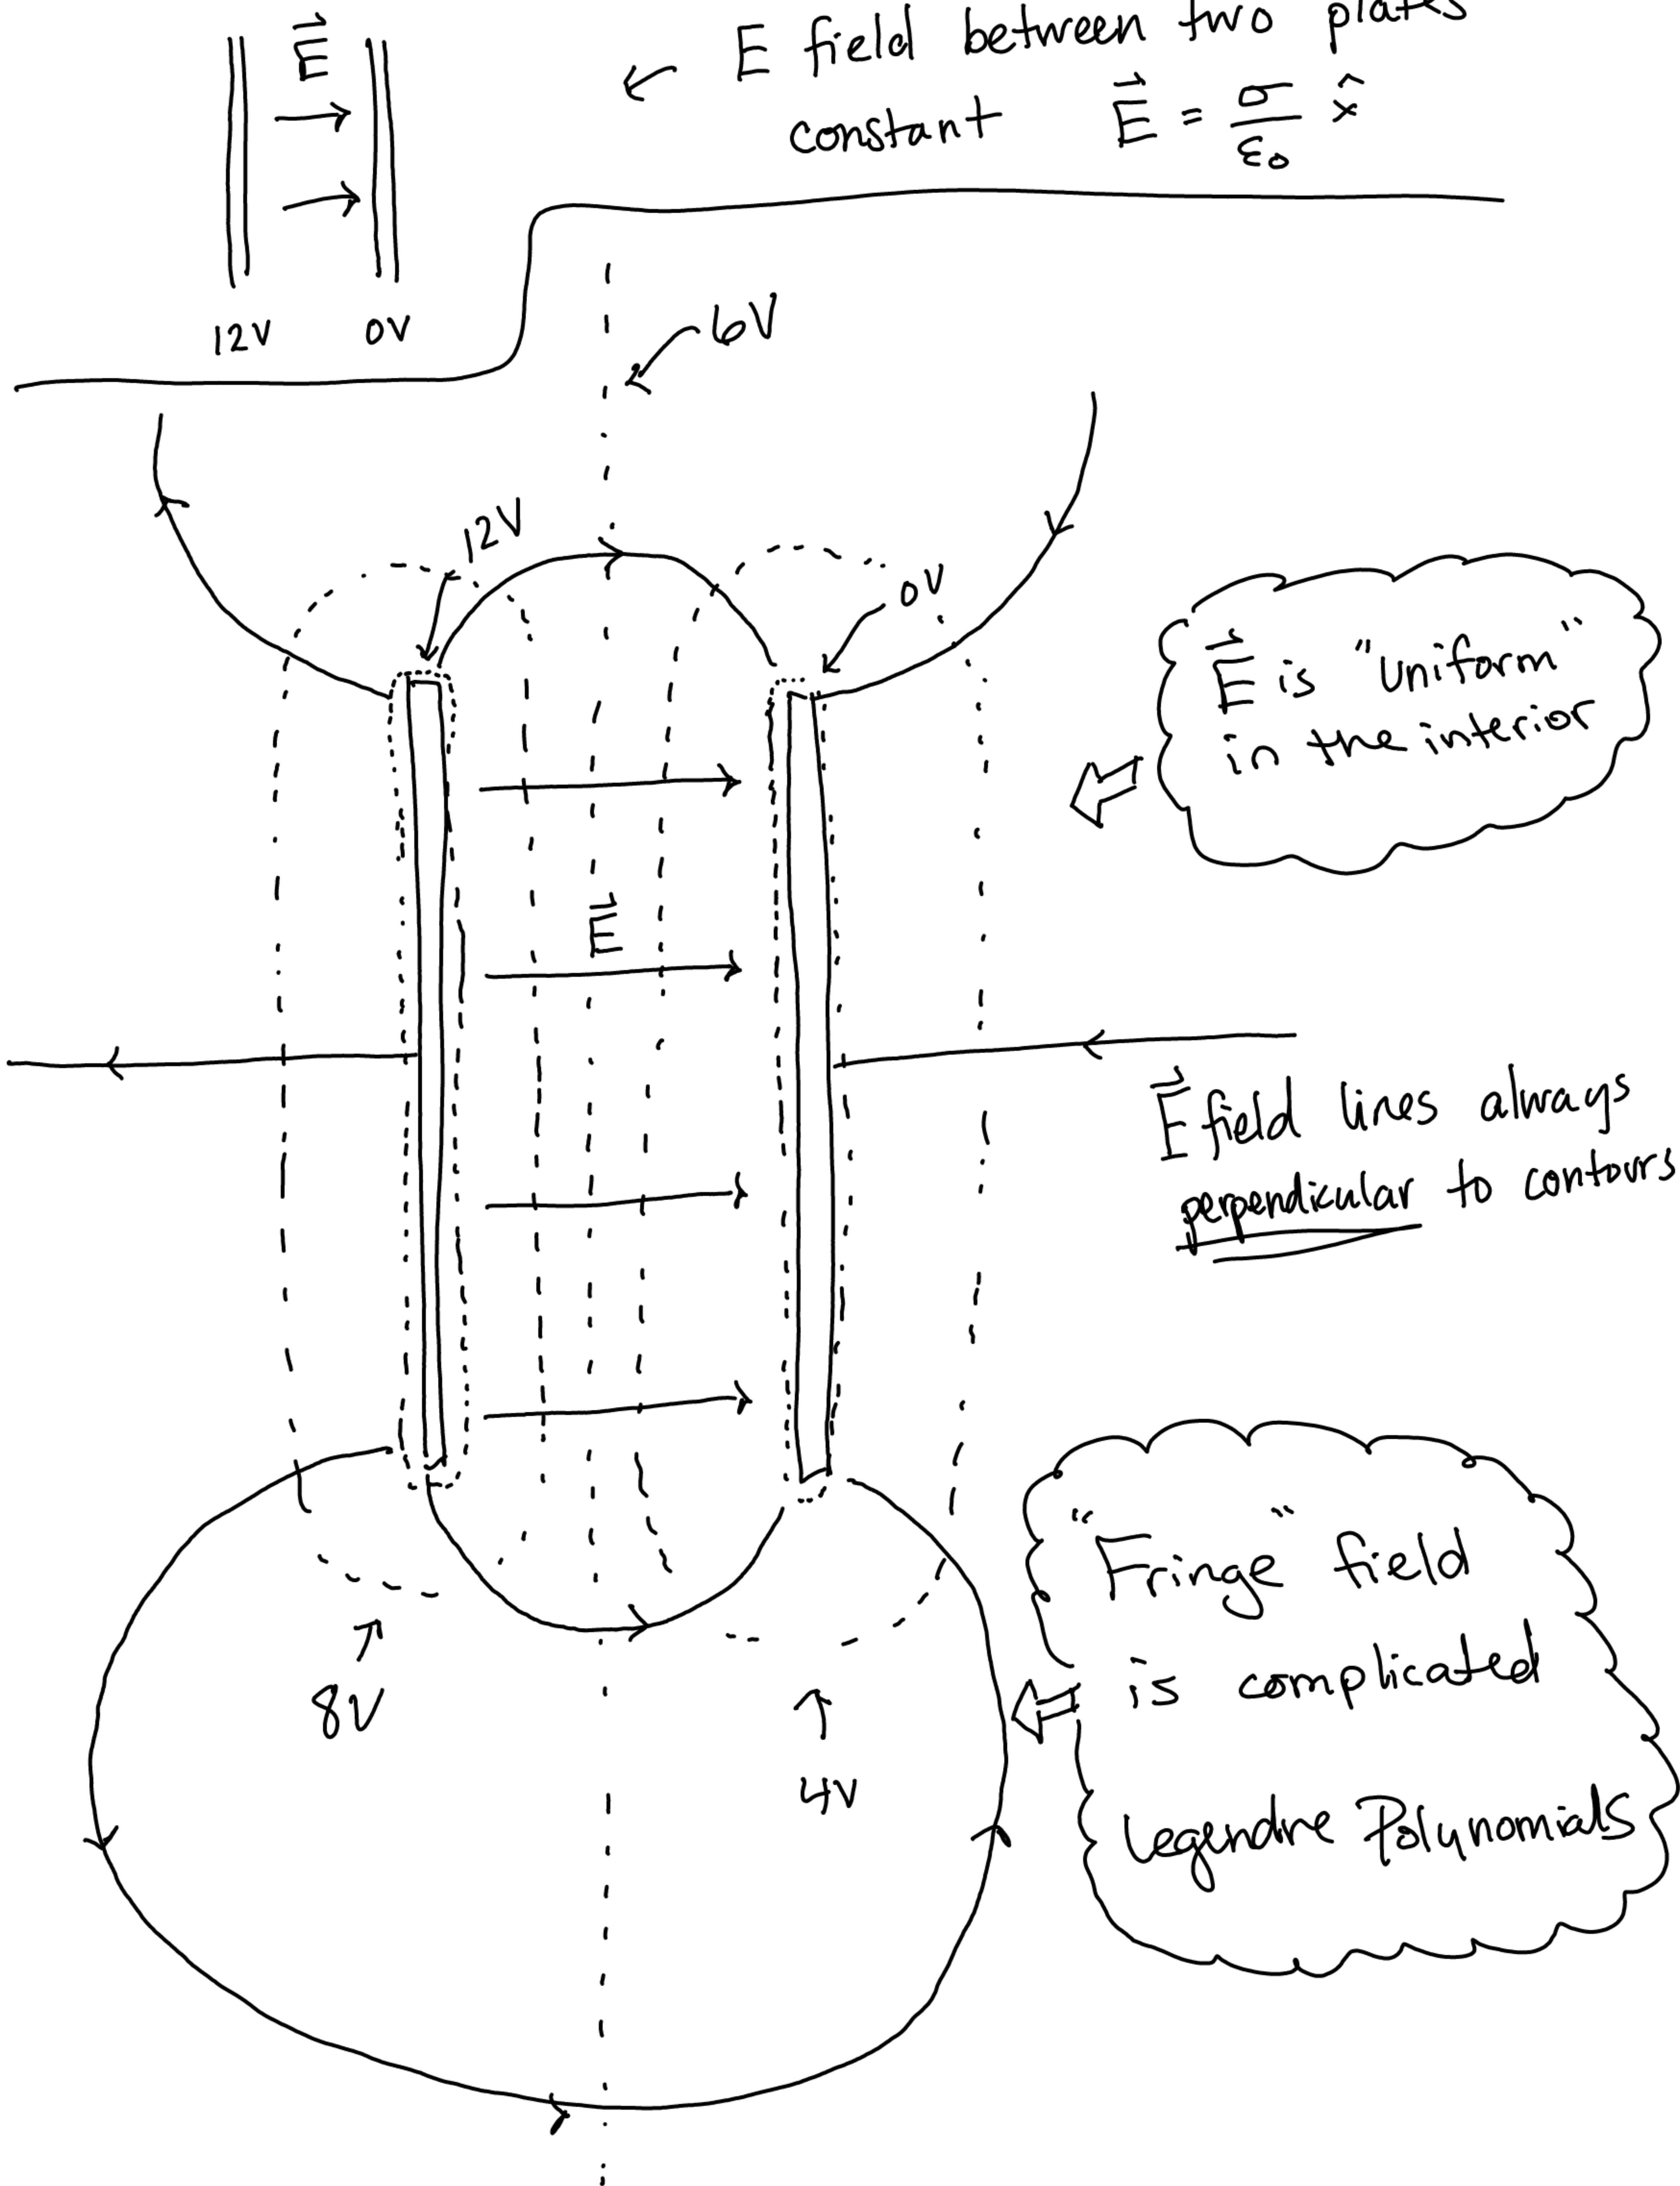 E field between two plates
constant E⃗ = σ/ε₀ x̂
E⃗
12V 0V
6V
12V
0V
E⃗ is "uniform"
in the interior
E⃗
E⃗ field lines always
perpendicular to contours
"Fringe" field
is complicated
Legendre Polynomials
8V
4V